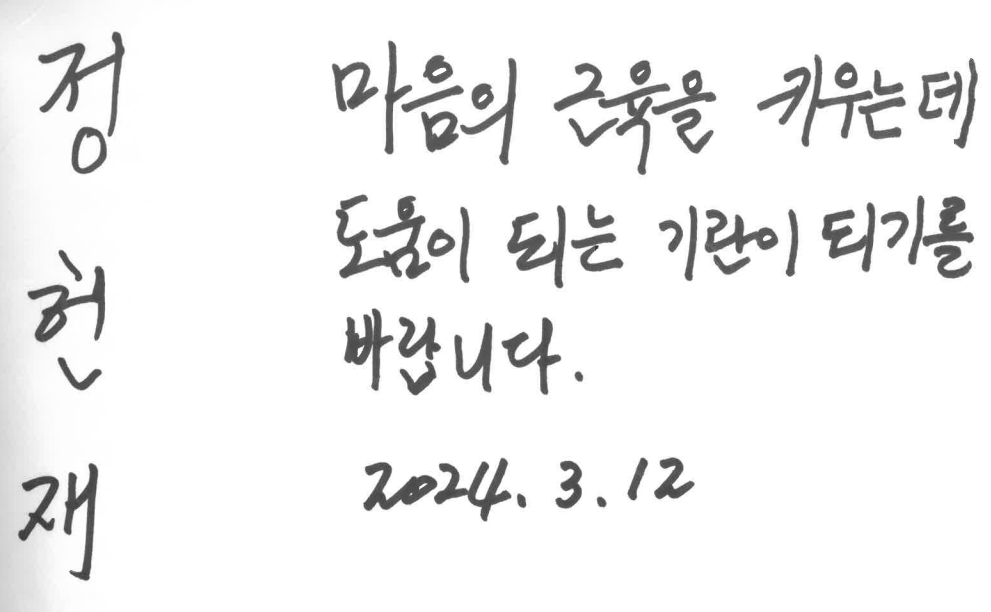 정헌재
마음의 근육을 키우는데
도움이 되는 기란이 되기를
바랍니다.
2024. 3. 12